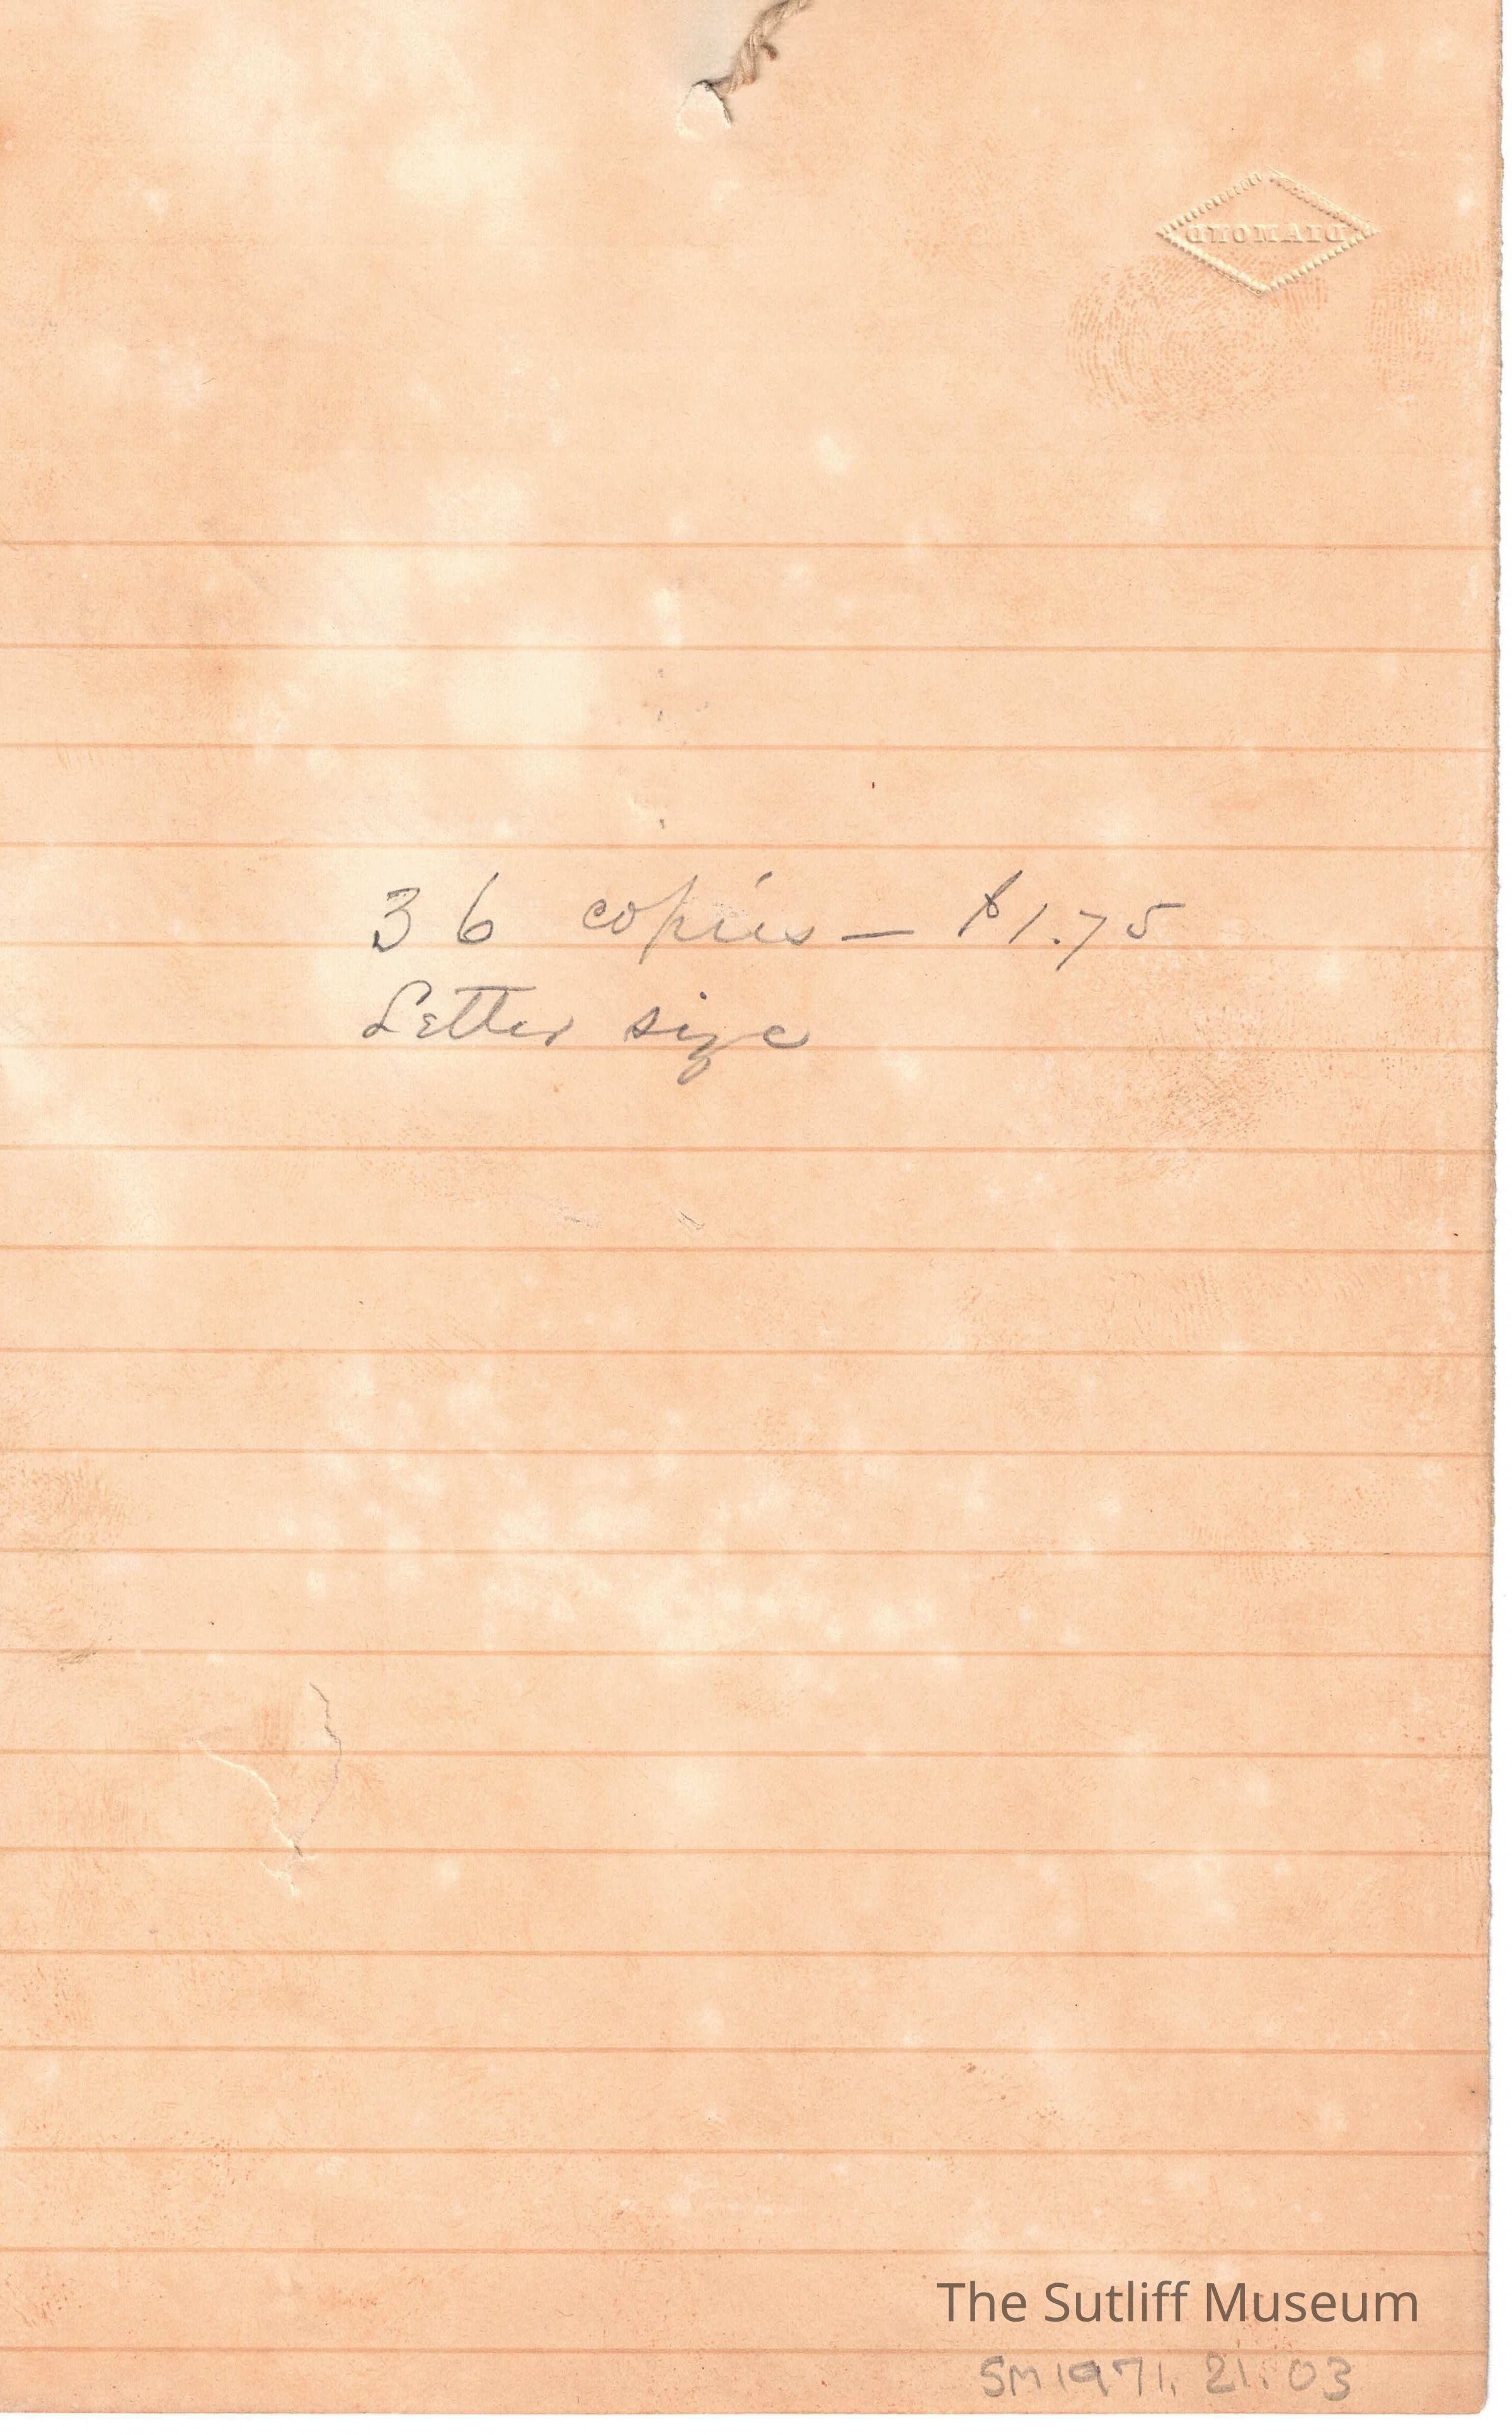 DIAMOND
36 copies — $1.75
Letter size
The Sutliff Museum
SM1971.21.03